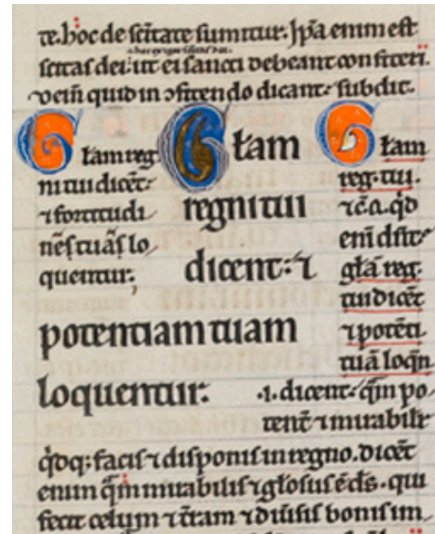 te. hoc de sc̄itate sumitur. Ip̄a enim est
sc̄itas dei: ut ei sancti debeant confiteri.
quid in ɔfitendo dicant: subdit.
Glāam reg
ni tui dicēt:
⁊ fortitudi
nēs tuas lo
quentur;
Glāam
regni tui
dicent: ⁊
potentiam tuam
loquentur.
Glāam
reg. tui.
⁊ c̄a. q̄d
eni
glā reg.
tui dicēt
⁊ potēti.
tuā loqn̄.
.i. dicent: qm̄ po
tent̄ ⁊ mirabilit̄
q̄dq; facis ⁊ disponis in regno. dicēt
enim qm̄ mirabilis ⁊ gl̄osus ē ds̄. qui
fecit celum ⁊ t̄ram ⁊ diuisis bonis im